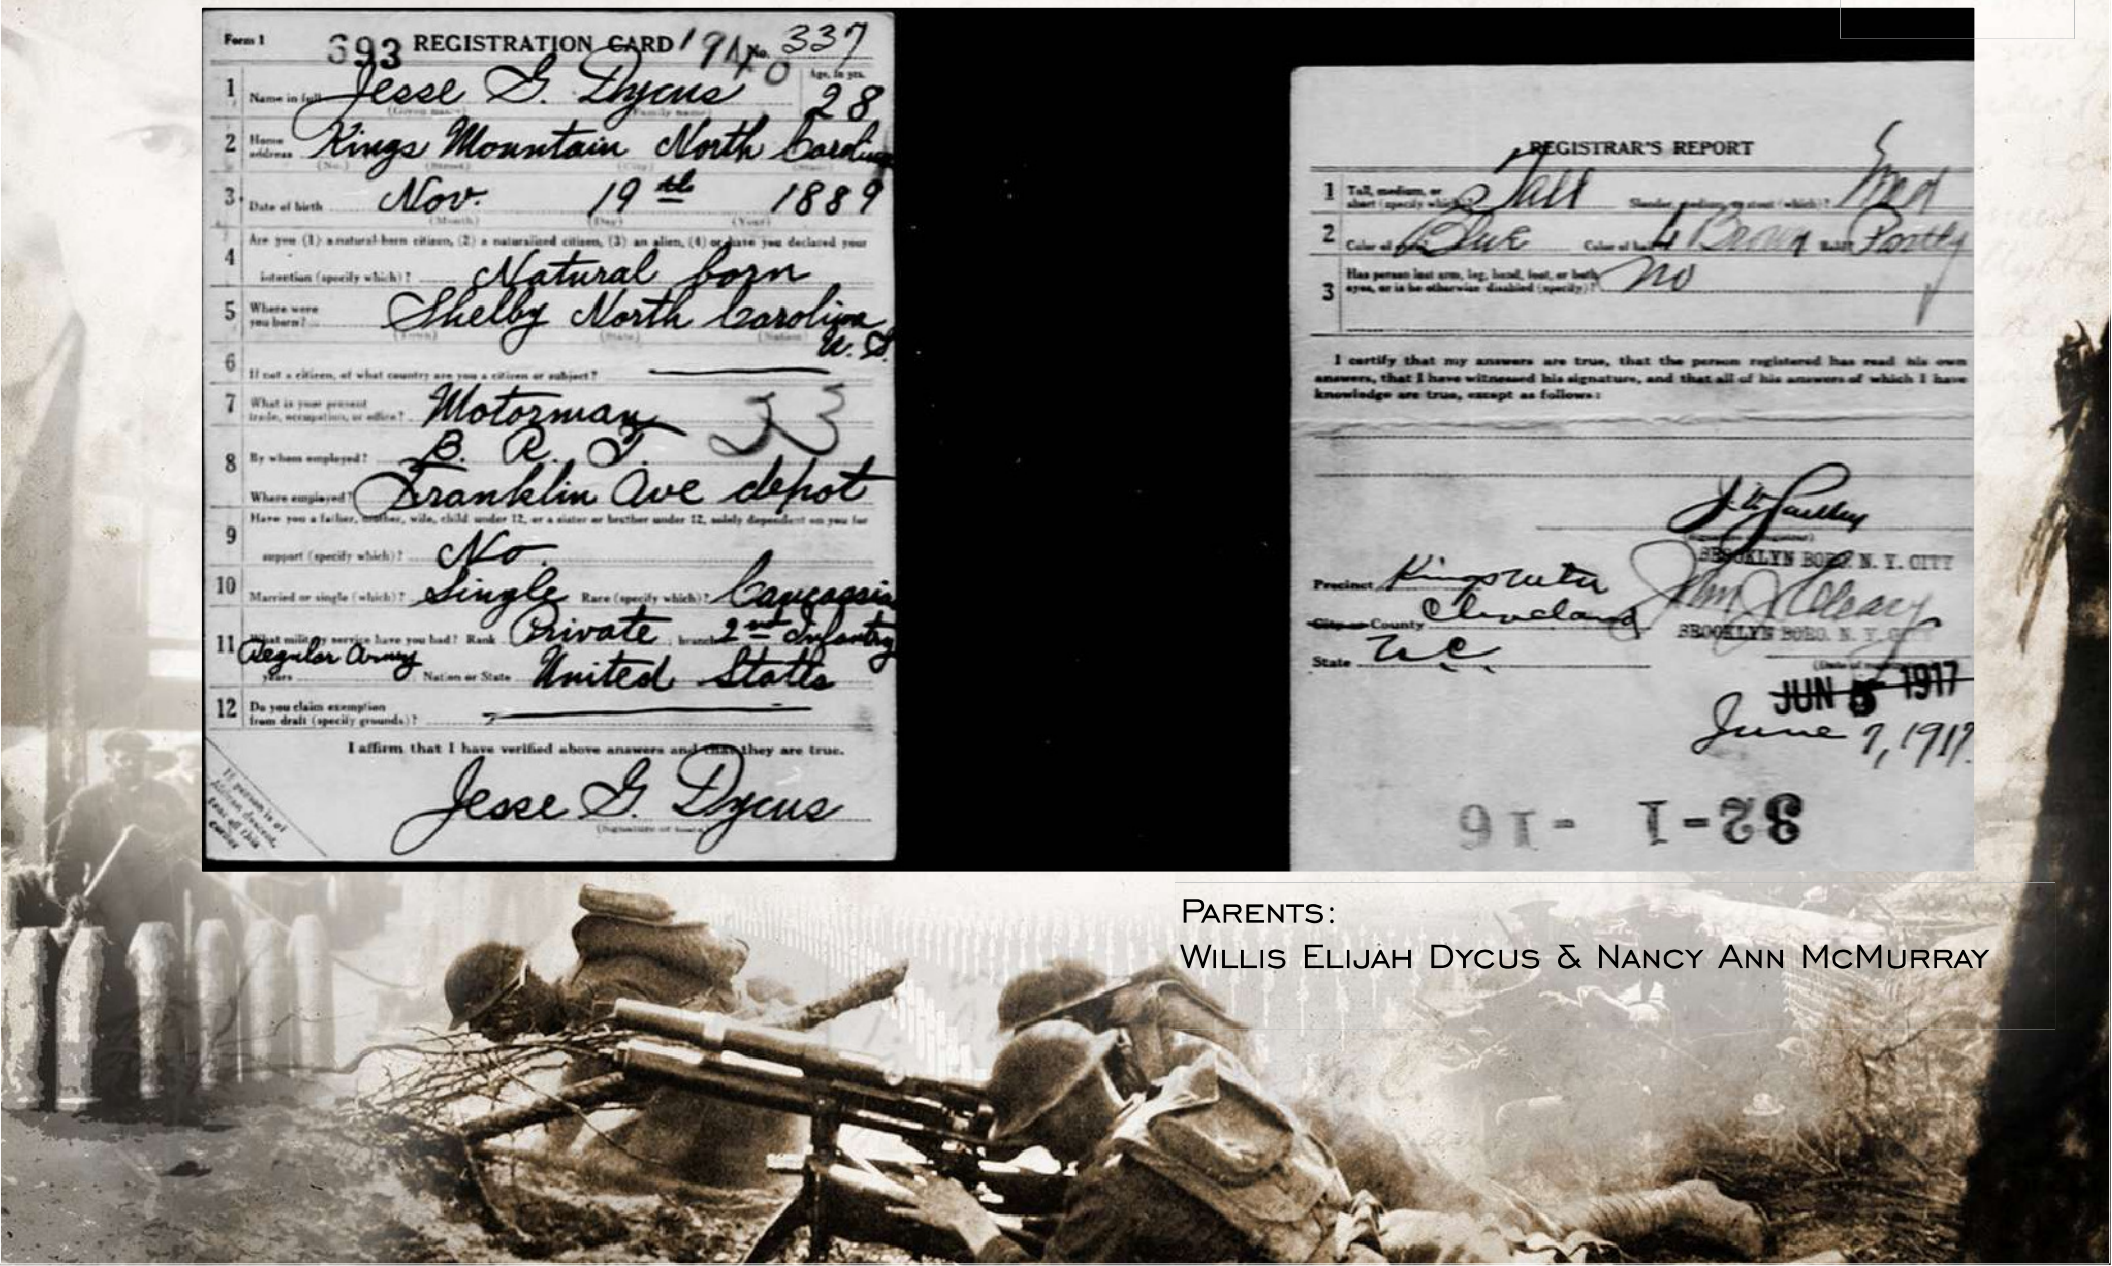 Form 1 693 REGISTRATION CARD 1940 No. 337
1 Name in full Jesse G. Dycus Age, in yrs. 28
(Given name) (Family name)
2 Home address Kings Mountain North Carolina
(No.) (Street) (City) (State)
3 Date of birth Nov. 19th 1889
(Month) (Day) (Year)
4 Are you (1) a natural-born citizen, (2) a naturalized citizen, (3) an alien, (4) or have you declared your
intention (specify which)? Natural born
5 Where were you born? Shelby North Carolina U.S.
(Town) (State) (Nation)
6 If not a citizen, of what country are you a citizen or subject?
7 What is your present trade, occupation, or office? Motorman 33
8 By whom employed? B. R. T.
Where employed? Franklin Ave depot
9 Have you a father, mother, wife, child under 12, or a sister or brother under 12, solely dependent on you for
support (specify which)? No
10 Married or single (which)? Single Race (specify which)? Caucassian
11 What military service have you had? Rank Private ; branch 2nd Infantry
Regular Army years Nation or State United States
12 Do you claim exemption from draft (specify grounds)?
I affirm that I have verified above answers and that they are true.
Jesse G. Dycus
If person is of African descent, tear off this corner
REGISTRAR'S REPORT
1 Tall, medium, or short (specify which)? Tall Slender, medium, or stout (which)? Med
2 Color of eyes? Blue Color of hair? L Brown Bald? Partly
3 Has person lost arm, leg, hand, foot, or both eyes, or is he otherwise disabled (specify)? No
I certify that my answers are true, that the person registered has read his own
answers, that I have witnessed his signature, and that all of his answers of which I have
knowledge are true, except as follows:
(Signature of registrar)
BROOKLYN BORO. N. Y. CITY
Precinct
City or County Cleveland
BROOKLYN BORO. N. Y. CITY
State N.C.
JUN 5 1917
June 7, 1917.
32-1 -16
PARENTS:
WILLIS ELIJAH DYCUS & NANCY ANN MCMURRAY